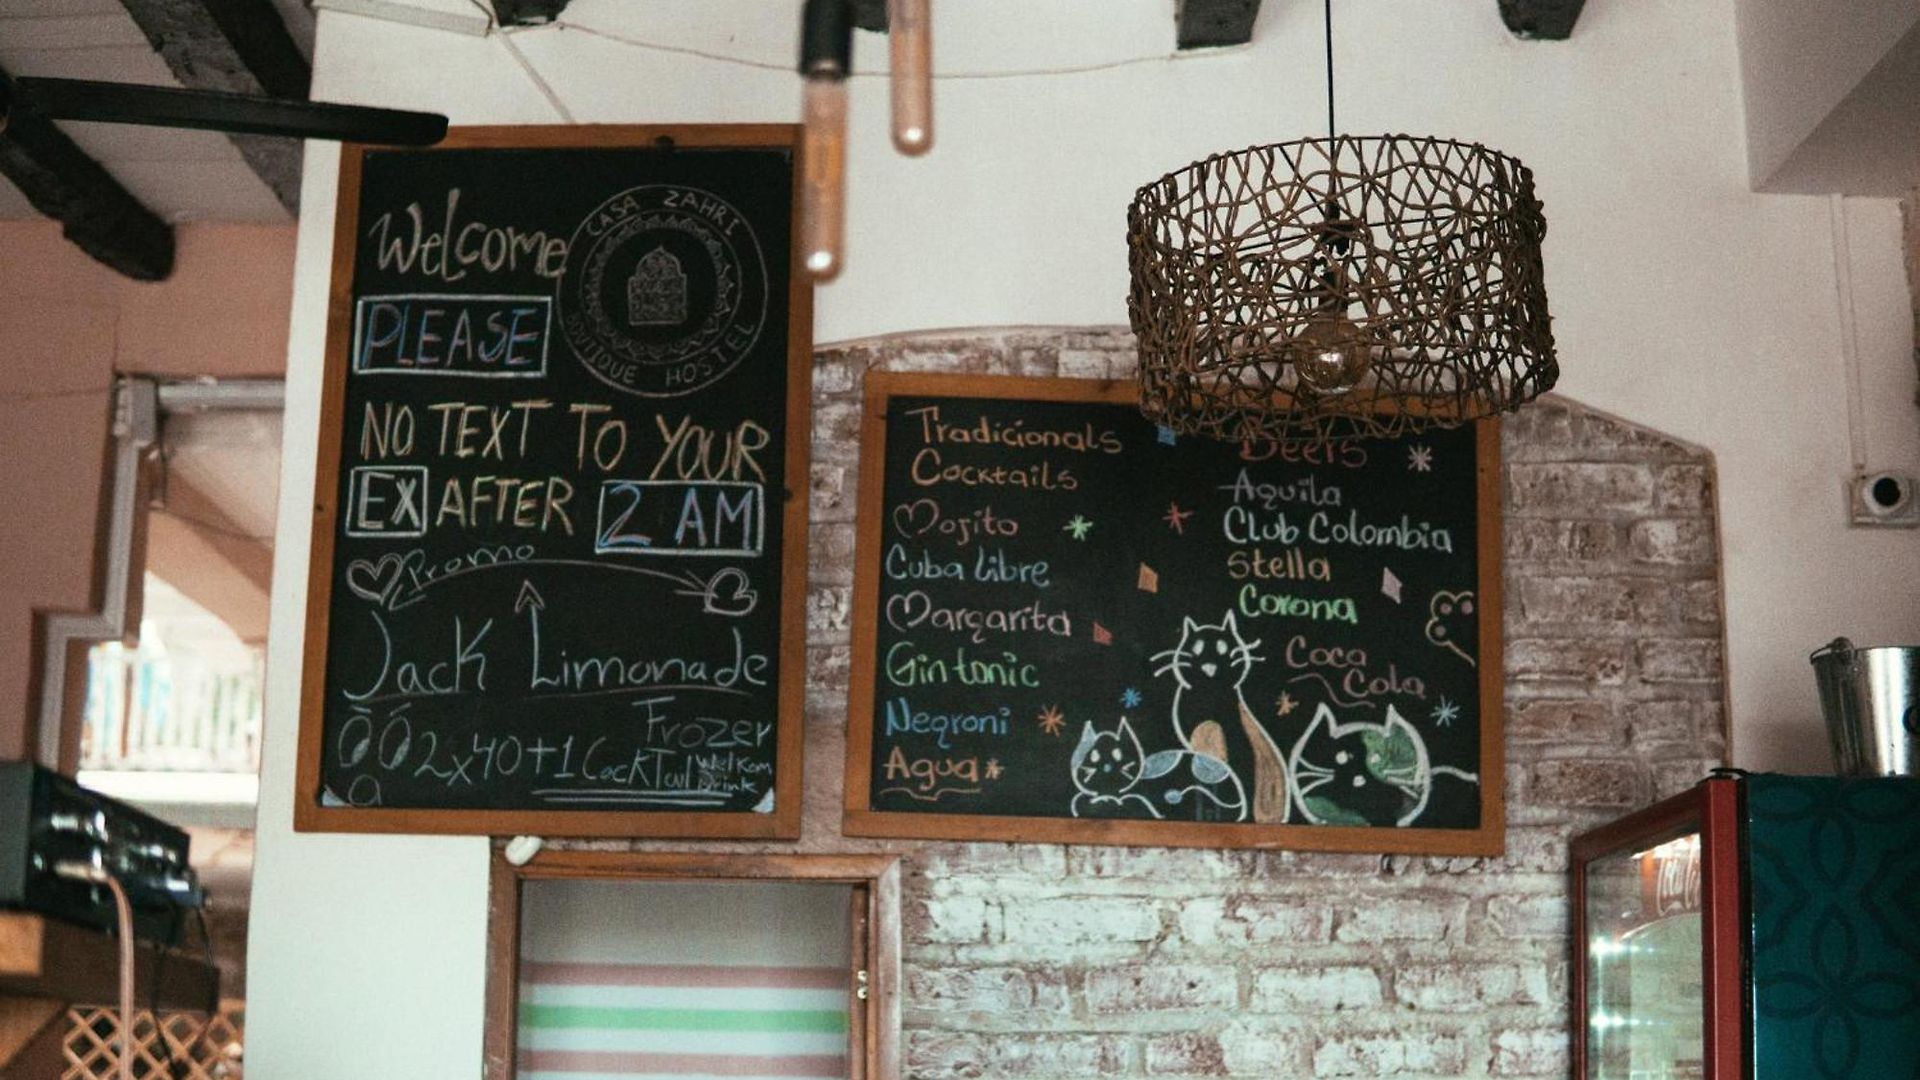 Welcome
CASA ZAHRI
BOUTIQUE HOSTEL
PLEASE
NO TEXT TO YOUR
EX AFTER 2 AM
Promo
Jack Limonade
Frozer
2x40+1 CockTail Welkom
Drink
Tradicionals
Cocktails
Mojito
Cuba Libre
Margarita
Gin tonic
Negroni
Agua
Beers
Aguila
Club Colombia
Stella
Corona
Coca
Cola